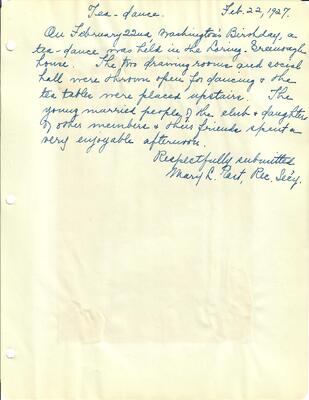 Tea-dance. Feb. 22, 1927.
On February 22nd, Washington's Birthday, a
tea-dance was held in the Loring-Greenough
house. The two drawing rooms and social
hall were thrown open for dancing & the
tea tables were placed upstairs. The
young married people of the club & daughters
of other members & their friends spent a
very enjoyable afternoon.
Respectfully submitted
Mary L. Rec. Sec'y.